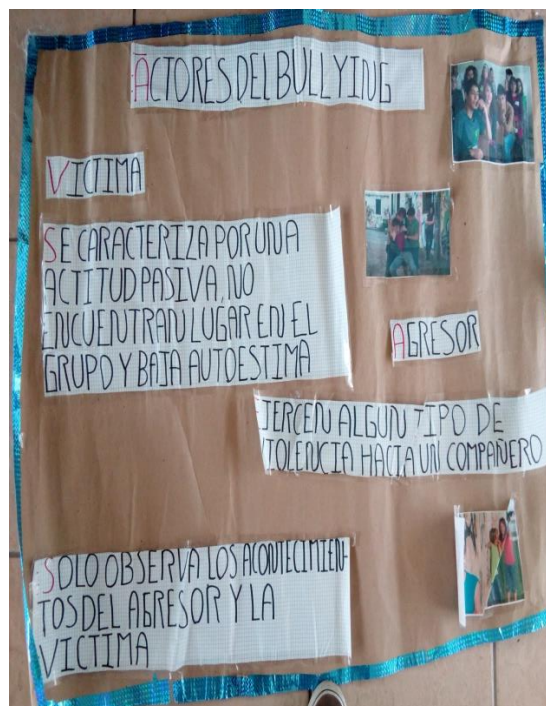 ACTORES DEL BULLYING
VICTIMA
SE CARACTERIZA POR UNA
ACTITUD PASIVA, NO
ENCUENTRAN LUGAR EN EL
GRUPO Y BAJA AUTOESTIMA
AGRESOR
EJERCEN ALGUN TIPO DE
VIOLENCIA HACIA UN COMPAÑERO
SOLO OBSERVA LOS ACONTECIMIEN-
TOS DEL AGRESOR Y LA
VICTIMA